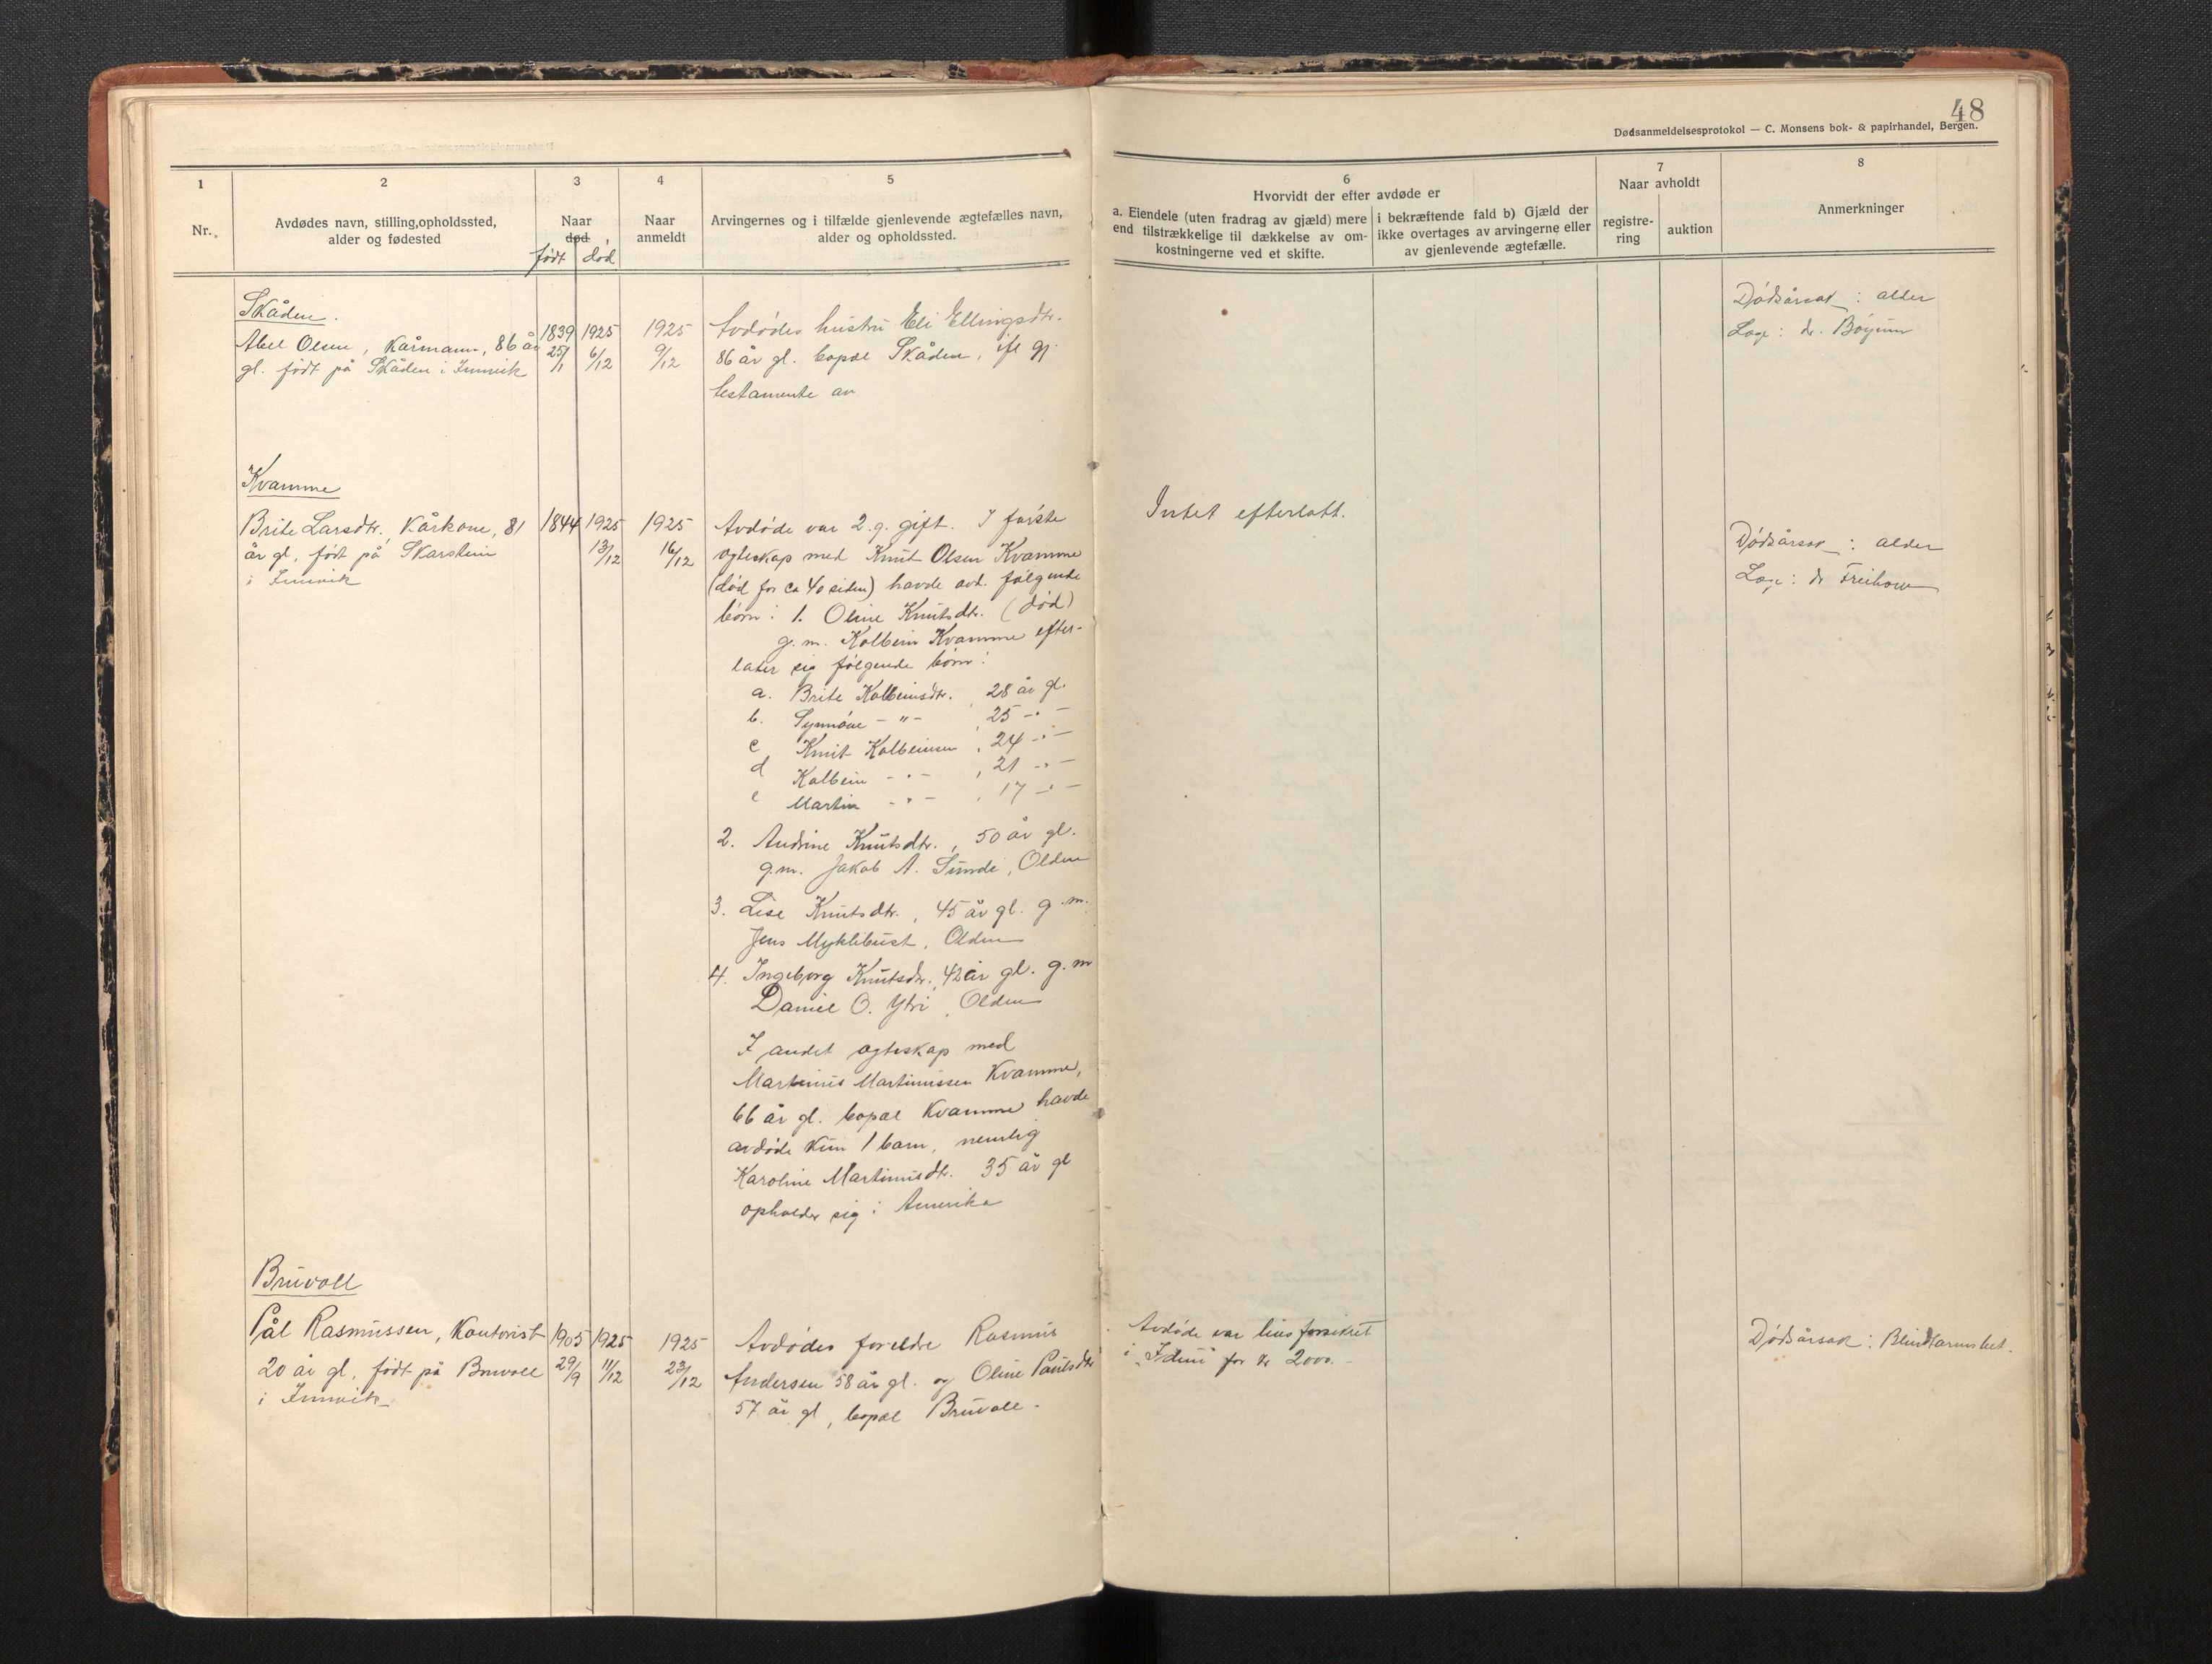 48
Dødsanmeldelsesprotokol — C. Monsens bok- & papirhandel, Bergen.
1
Nr.
2
Avdødes navn, stilling, opholdssted,
alder og fødested
3
Naar
død
født død
4
Naar
anmeldt
5
Arvingernes og i tilfælde gjenlevende ægtefælles navn,
alder og opholdssted.
6
Hvorvidt der efter avdøde er
a. Eiendele (uten fradrag av gjæld) mere
end tilstrækkelige til dækkelse av om-
kostningerne ved et skifte.
i bekræftende fald b) Gjæld der
ikke overtages av arvingerne eller
av gjenlevende ægtefælle.
7
Naar avholdt
registre-
ring
auktion
8
Anmerkninger
Skåden.
Abel Olsen, Kårmann, 86 år
gl. født på Skåden i Innvik
1839
25/1
1925
6/12
1925
9/12
Avdødes hustru Eli Ellingsdtr.
86 år gl. bopæl Skåden, ifl gj.
testamente av
Dødsårsak: alder
Læge: dr. Bøyum
Kvamme
Brite Larsdtr. Kårkone, 81
år gl, født på Skarstein
i Innvik
1844
1925
13/12
1925
16/12
Avdøde var 2. g. gift. I første
ægteskap med Knut Olsen Kvamme
(død for ca 40 siden) havde avd. følgende
børn: 1. Oline Knutsdtr. (død)
g. m. Kolbein Kvamme efter-
later sig følgende børn:
a. Brite Kolbeinsdtr. 28 år gl.
b. Synnøve - " - , 25 - " -
c Knut Kolbeinsen , 24 - " -
d Kolbein - " - , 21 - " -
e Martin - " - , 17 - " -
2. Andrine Knutsdtr., 50 år gl.
g.m. Jakob A. Sunde, Olden
3. Lise Knutsdtr., 45 år gl. g.m.
Jens Myklebust, Olden
4. Ingeborg Knutsdtr., 42 år gl. g. m
Daniel O. Ytri, Olden
I andet ægteskap med
Martinus Martinussen Kvamme,
66 år gl. bopæl Kvamme havde
avdøde kun 1 barn, nemlig
Karoline Martinusdtr. 35 år gl
opholder sig i Amerika
Intet efterlatt.
Dødsårsak: alder
Læge: dr Freihow
Bruvoll
Pål Rasmussen, Kontorist
20 år gl, født på Bruvoll
i Innvik
1905
29/9
1925
11/12
1925
23/12
Avdødes foreldre Rasmus
Andersen 58 år gl. og Oline Paulsdtr
57 år gl, bopæl Bruvoll.
Avdøde var livsforsikret
i "Idun" for kr 2000.-
Dødsårsak: Blindtarmsbet.